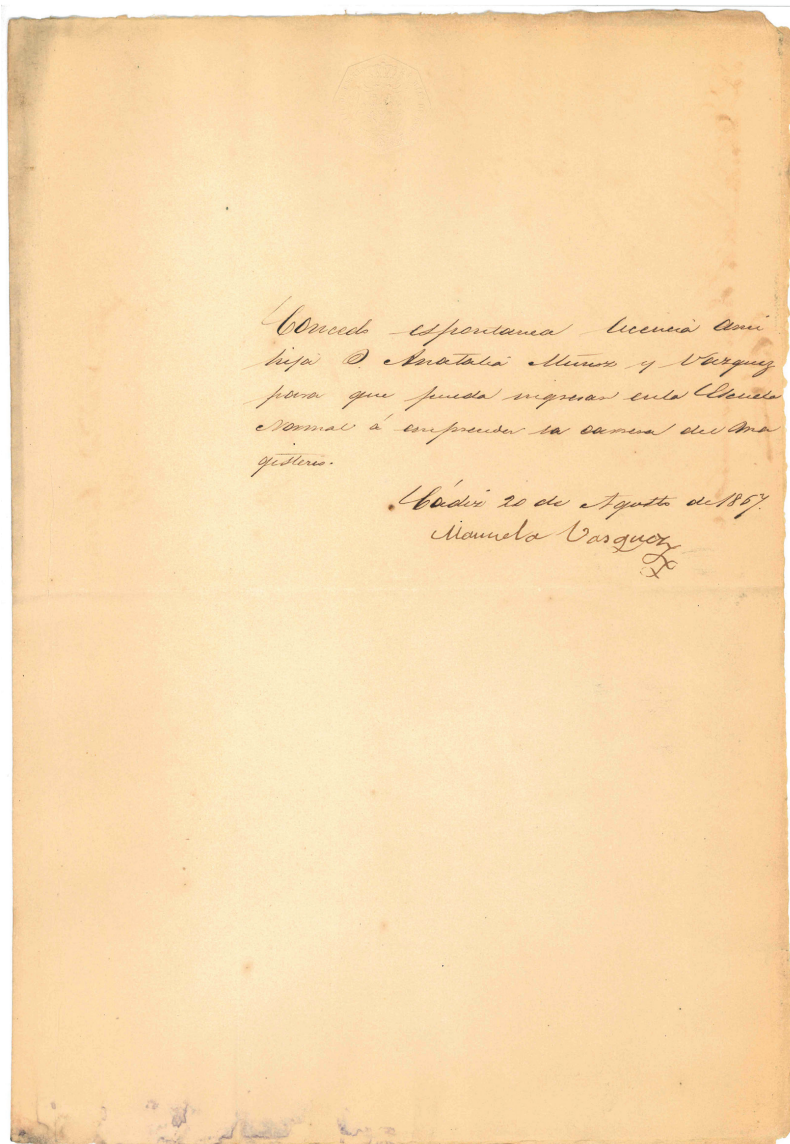 Concedo espontanea licencia ami
hija D. Anatalia Muñoz y Vazquez
para que pueda ingresar enla Escuela
Normal á emprender la carrera del Ma
gisterio.
Cádiz 20 de Agosto de 1867.
Manuela Vasquez